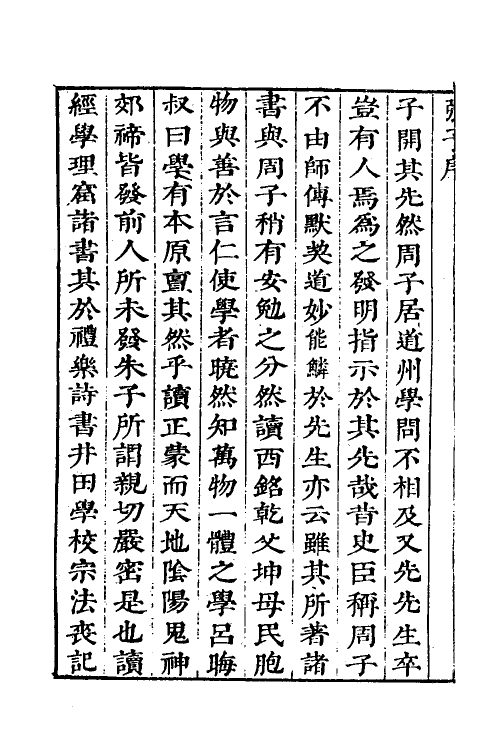 張子序
子開其先然周子居道州學問不相及又先先生卒
豈有人焉為之發明指示於其先哉昔史臣稱周子
不由師傅默契道妙能鱗於先生亦云雖其所著諸
書與周子稍有安勉之分然讀西銘乾父坤母民胞
物與善於言仁使學者曉然知萬物一體之學呂晦
叔曰學有本原亶其然乎讀正蒙而天地陰陽鬼神
郊禘皆發前人所未發朱子所謂親切嚴密是也讀
經學理窟諸書其於禮樂詩書井田學校宗法喪記